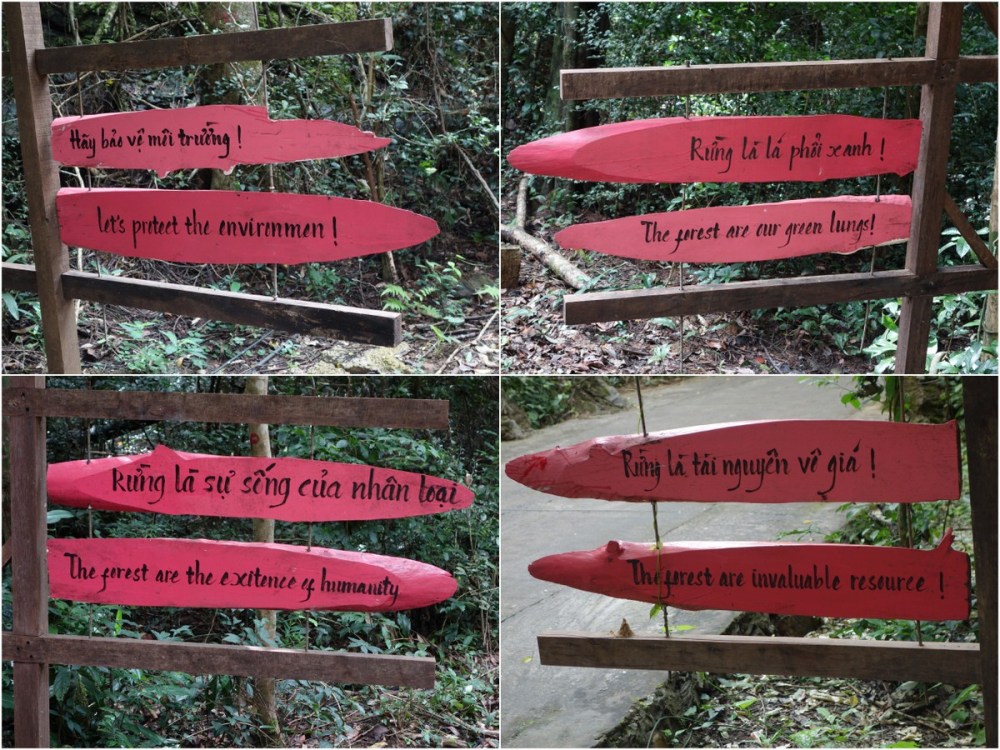 Hãy bảo vệ môi trường !
let's protect the environmen !
Rừng là lá phổi xanh !
The forest are our green lungs!
Rừng là sự sống của nhân loại
The forest are the exitence of humanity
Rừng là tài nguyên vô giá !
The forest are invaluable resource !